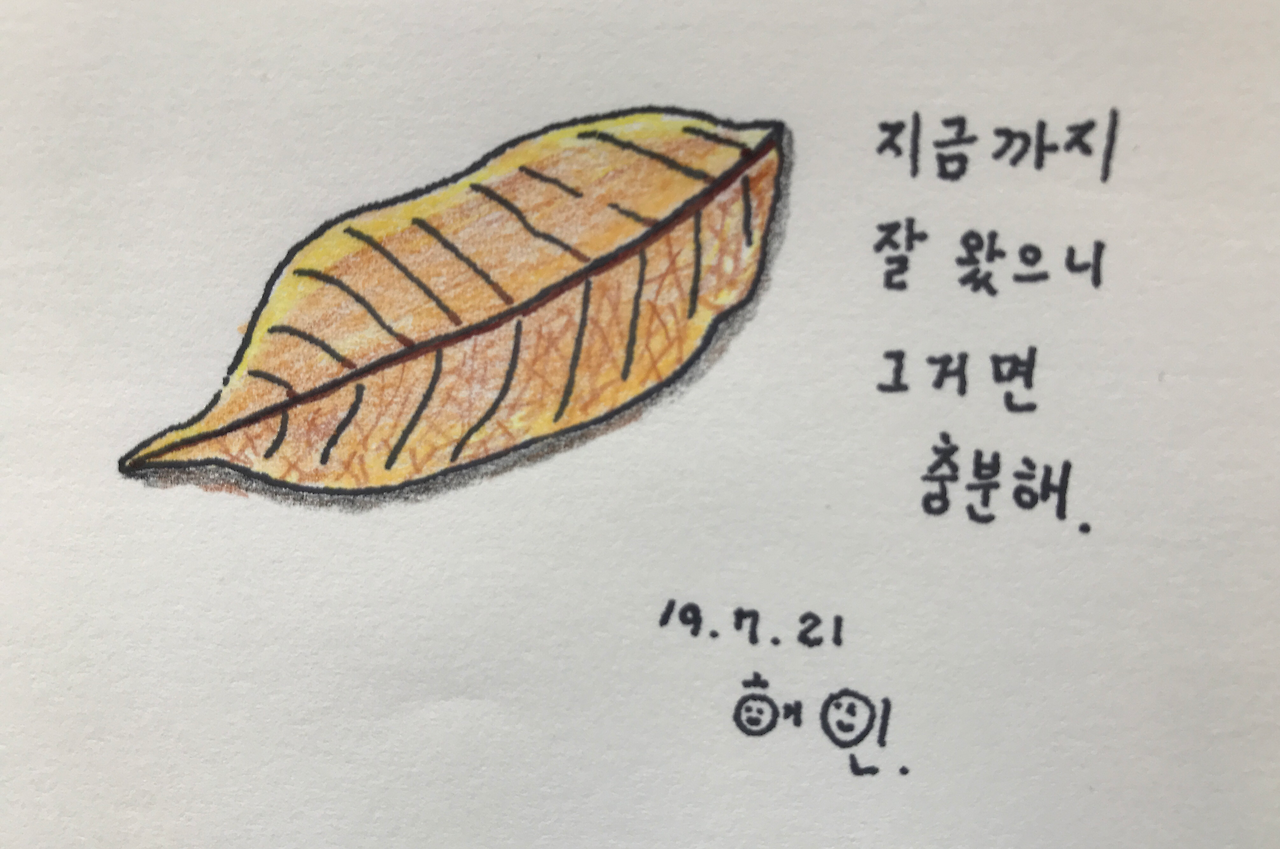 지금까지
잘 왔으니
그거면
충분해.
19.7.21
혜인.